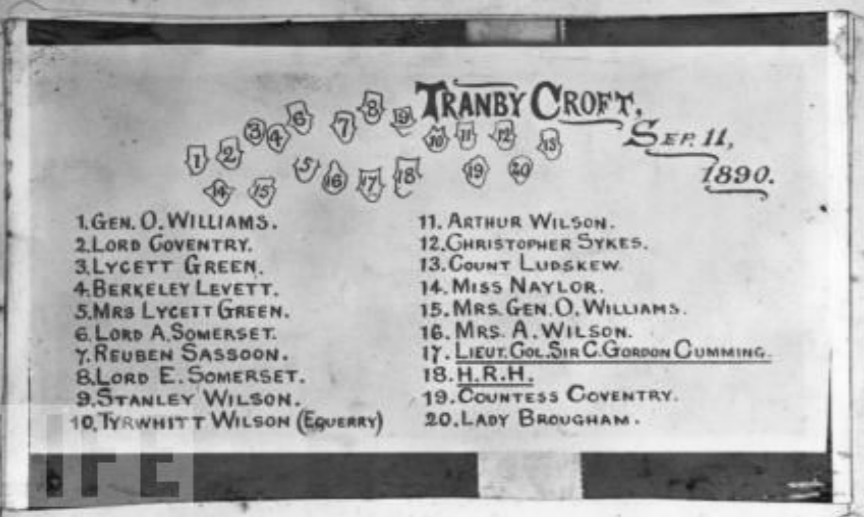 TRANBY CROFT,
SEP. 11,
1890.
1 2 3 4 6 7 8 9 10 11 12 13
14 15 5 16 17 18 19 20
1. GEN. O. WILLIAMS.
2. LORD COVENTRY.
3. LYCETT GREEN.
4. BERKELEY LEVETT.
5. MRS LYCETT GREEN.
6. LORD A. SOMERSET.
7. REUBEN SASSOON.
8. LORD E. SOMERSET.
9. STANLEY WILSON.
10. TYRWHITT WILSON (EQUERRY)
11. ARTHUR WILSON.
12. CHRISTOPHER SYKES.
13. COUNT LUDSKEW.
14. MISS NAYLOR.
15. MRS. GEN. O. WILLIAMS.
16. MRS. A. WILSON.
17. LIEUT. COL. SIR C. GORDON CUMMING.
18. H.R.H.
19. COUNTESS COVENTRY.
20. LADY BROUGHAM.
LIFE